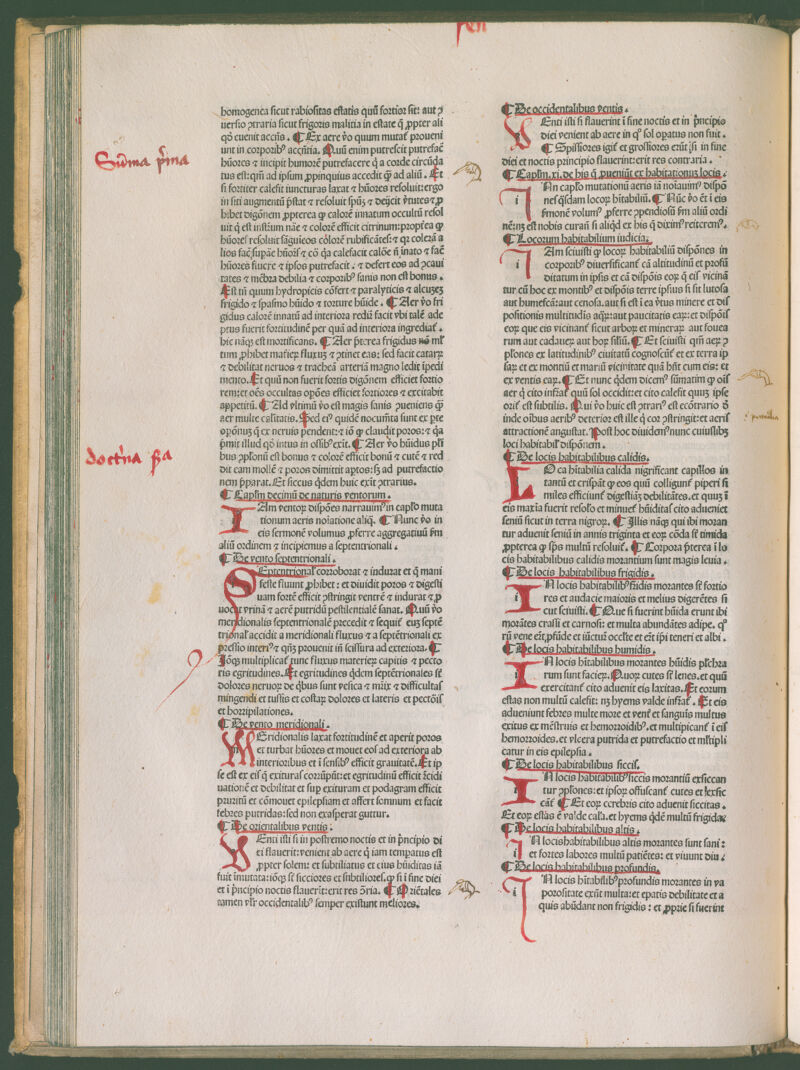 fen
Suma pima
doctna pa
homogenea sicut rabiositas estatis quū fortior sit: aut ↄ
uersio ↄtraria sicut frigoris malitia in estate ꝙ ꝓpter ali
qđ euenit accñs. ¶ Ex aere v̄o quum mutať proueni
unt in corporibꝰ accñtia. Quū enim putrescit putrefac̄
hūores ⁊ incipit humorē putrefacere ꝗ̄ a corde circūda
tus est: qm̄ ad ipsum ꝓpinquius accedit ꝙ̄ ad aliū. Et
si fortiter calefit iuncturas laxat ⁊ hūores resoluit: ergo
in siti augmentū p̄stat ⁊ resoluit sp̄us ⁊ deijcit v̄tutes ⁊ ꝓ
hibet digōnem ꝓpterea ꝙ calorē innatum occultū resol
uit ꝗ̄ est instīum nāe ⁊ colorē efficit citrinum: proptea ꝙ
hūores resoluit sāguieos colorē rubificātes: ⁊ ꝗꝫ colerā a
lios fac̄ supāe hūores ⁊ cō ꝗa calefacit calōe ñ inato ⁊ fac̄
hūores fluere ⁊ ipsos putrefacit. ⁊ defert eos ad ↄcaui
tates ⁊ mēbra debilia ⁊ corporibꝰ sanis non est bonus.
Est tn̄ quum hydropicis cōfert ⁊ paralyticis ⁊ alcuzez
frigido ⁊ spasmo hūido ⁊ torture hūide. ¶ Aer v̄o fri
gidus calorē innatū ad interiora redū facit vbi talē ade
ptus fuerit fortitudinē per quā ad interiora ingrediať.
hic nāꝗꝫ est mortificans. ¶ Aer p̄terea frigidus nō ml̄
tum ꝓhibet materieꝝ fluxus ⁊ ↄtinet eas: sed facit catarꝝ
⁊ debilitat neruos ⁊ tracheā arteriā magno ledit ipedi
mento. Et quū non fuerit fortis digōnem efficiet fortio
rem: et oēs occultas opōes efficiet fortiores ⁊ excitabit
appetitū. ¶ Ad vltimū v̄o est magis sanis ꝓueniens ꝙ̄
aer multe calitatis. Sed eiꝰ quidē nocumīta sunt ex pte
opōnus ꝗ̄ ex neruis pendent: ⁊ iō ꝙ claudit poros: ⁊ ꝗa
p̄mit illud qđ intus in ossibꝰ exit. ¶ Aer v̄o hūidus plī
bus ꝓplonū est bonus ⁊ colorē efficit bonū ⁊ cutē ⁊ red
dit eam mollē ⁊ poros dimittit aptos: sꝫ ad putrefactio
nem p̄parat. Et siccus ꝗ̄dem huic exīt ↄtrarius.
¶ Capľm decimū de naturis ventorum.
IAm ventoꝝ dispōes narrauimꝰ in capľo muta
tionum aeris noīatione aliꝗ̄. ¶ Nunc v̄o in
eis sermonē volumus ꝓferre aggregatiuū ẜm
aliū ordinem ⁊ incipiemus a septentrionali.
¶ De vento septentrionali.
SEptentrionaľ corroborat ⁊ indurat et ꝗ̄ mani
feste fluunt ꝓhibet: et diuidit poros ⁊ digesti
uam fortē efficit ↄstringit ventrē ⁊ indurat ⁊ ꝓ
uocat vrinā ⁊ aerē putridū pestilentialē sanat. Quū v̄o
meridionalis septentrionalē precedit ⁊ sequiť eius septē
trionaľ accidit a meridionali fluxus ⁊ a septētrionali ex
pressio interiꝰ ⁊ ꝗñꝫ prouenit iū scissura ad exteriora. ¶
Iōꝗꝫ multiplicať tunc fluxus materieꝝ capitis ⁊ pecto
ris egritudines. Et egritudines ꝗ̄dem septētrionales sē
dolores neruoꝝ de ꝗ̄bus sunt vesica ⁊ mr̄ix ⁊ difficultas
mingendi et tussis et costaꝝ dolores et lateris et pectōis
et horripilationes.
¶ De vento meridionali.
MEridionalis laxat fortitudinē et aperit poros
et turbat hūores et mouet eos ad exteriora ab
interioribus et ī sensibꝰ efficit grauitatē. Et ip
se est ex eis ꝗ̄ exituras corrūpūt: et egritudinū efficit r̄cidi
uationē et debilitat et sup exituram et podagram efficit
pruritū et cōmouet epilepsiam et affert somnum et facit
febres putridas: sed non exasperat guttur.
¶ De orientalibus ventis.
VEnti isti si in postremo noctis et in p̄ncipio di
ei flauerīt: venient ab aere ꝗ̄ iam tempatus est
ꝓpter solem: et subtiliatus et eius hūiditas iā
fuit īmutata: iōꝗꝫ sē sicciores et subtiliores. ꝙ si ī fine diei
et ī p̄ncipio noctis flauerīt: erit res ōria. ¶ Oriētales
tamen vľr occidentalibꝰ semper existunt meliores.
¶ De occidentalibus ventis.
VEnti isti si flauerint ī fine noctis et in p̄ncipio
diei venient ab aere in ꝙ̄ sol opatus non fuit.
¶ Spissiores igiť et grossiores erūt: si in fine
diei et noctis principio flauerint: erit res contraria.
¶ Capľm. xi. de his ꝗ̄ ꝓueniūt ex habitationuꝫ locis.
IN capľo mutationū aeris iā noīauimꝰ dispō
nes ꝗ̄sdam locoꝝ hītabiliū. ¶ Nūc v̄o ēt ī eis
ẜmonē volumꝰ ꝓferre ↄpendiosū ẜm aliū ordi
nē: nꝫ est nobis curan̄ si aliꝗ̄d ex his ꝗ̄ diximꝰ reiteremꝰ.
¶ Locorum habitabilium iudicia.
IAm sciuisti ꝙ locoꝝ habitabiliū dispōnes in
corporibꝰ diuersificanť cā altitudinū et profū
ditatum in ipsis et cā dispōis eoꝝ ꝗ̄ eis vicinā
tur cū hoc ex montibꝰ et dispōis terre ipsius si sit lutosa
aut humefcā: aut cenosa. aut si est ī ea v̄tus minere et dis
positionis multitudis aqꝝ: aut paucitatis eaꝝ: et dispōis
eoꝝ que eis vicinanť sicut arboꝝ et mineraꝝ aut fouea
rum aut cadaueꝝ aut hoꝝ siľiū. ¶ Et sciuisti qm̄ aeꝝ ↄ
plones ex latitudinibꝰ ciuitatū cognoscunť et ex terra ip
saꝝ et ex montiū et mariū vicinitate quā hn̄t cum eis: et
ex ventis eaꝝ. ¶ Et nunc ꝗ̄dem dicemꝰ sūmatim ꝙ oīs
aer ꝗ̄ cito infrať quū sol occidit: et cito calefit quuꝫ ipse
oriť est subtilis. Qui v̄o huic est ↄtrariꝰ est ecōtrario ð
inde oībus aeribꝰ deterior est ille ꝗ̄ cor ↄstringit: et aeris
attractionē angustat. Post hoc diuidemꝰ nunc cuiuslibꝫ
loci habitabiľ dispōnem.
¶ De locis habitabilibus calidis.
LOca hītabilia calida nigrificant capillos in
tantū et crispāt ꝙ eos quū colligunť piperi si
miles efficiunť digestiāꝫ debilitātes. et quuꝫ ī
eis maxīa fuerit resolō et minueť hūiditas cito adueniet
seniū sicut in terra nigroꝝ. ¶ Illis nāꝗꝫ qui ibi moran
tur adueniet seniū in annis triginta et eoꝝ cōda sē timida
ꝓpterea ꝙ sp̄s multū resoluiť. ¶ Corpora p̄terea ī lo
cis habitabilibus calidis morantium sunt magis leuia.
¶ De locis habitabilibus frigidis.
IN locis habitabilibꝰ frīdis morantes sē fortio
res et audacie maioris et melius digerētes si
cut sciuisti. ¶ Que si fuerint hūida erunt ibi
morātes crassi et carnosi: et multa abundātes adipe. ꝙ
rū vene ēēt ꝓfūde et iūctū occľte et ēēt ipi teneri et albi.
¶ De locis habitabilibus humidis.
IN locis hītabilibus morantes hūidis pľchra
rum sunt facieꝝ. Quoꝝ cutes sē lenes. et quū
exercitanť cito aduenit eis laxitas. Et eorum
estas non multū calefit: nꝫ hyems valde infrať. Et eis
adueniunt febres multe more et venť et sanguis multus
exitus ex mēstruis et hemorroidibꝰ. et multiplicant ī eis
hemorroides. et vlcera putrida et putrefactio et mľtipli
catur in eis epilepsia.
¶ De locis habitabilibus siccis.
IN locis habitabilibꝰ siccis morantiū exsiccan
tur ↄplones: et ipsoꝝ offuscanť cutes et exsic
cāt̄. ¶ Et eoꝝ cerebris cito aduenit siccitas.
Et eoꝝ estās ē valde cal̄a. et hyems ꝗ̄dē multū frigida.
¶ De locis habitabilibus altis.
IN locis habitabilibus altis morantes sunt sani:
et fortes labores multū patiētes: et viuunt diu.
¶ De locis habitabilibus profundis.
IN locis hītabilibꝰ profundis morantes in va
porositate exūt multa: et epatis debilitate et a
quis abūdant non frigidis: et ꝓprie si fuerint